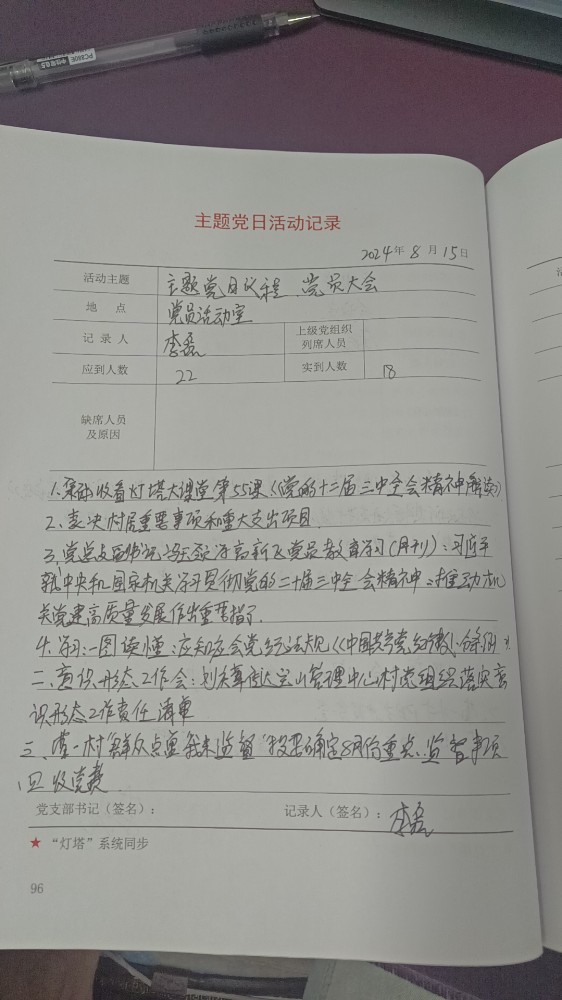 主题党日活动记录
2024年 8 月 15日
活动主题 主题党日议程、党员大会
地 点 党员活动室
记 录 人 李磊 上级党组织列席人员
应到人数 22 实到人数 18
缺席人员及原因
1.集体收看灯塔大课堂第55课《党的十二届三中全会精神解读》
2、表决村居重要事项和重大支出项目
3.党总支副书记 高新区党员教育学习(月刊):习近平
就中央和国家机关学习贯彻党的二十届三中全会精神,推动机
关党建高质量发展作出重要指示
4.学习:一图读懂:应知应会党内法规《中国共产党纪律处分条例》
二、意识形态工作会: 传达 山管理中心村党组织落实意
识形态工作责任清单
三、 一村"群众点题 我来监督"投票确定8月份重点监督事项
四 收党费
党支部书记(签名): 记录人(签名): 李磊
★ “灯塔”系统同步
96